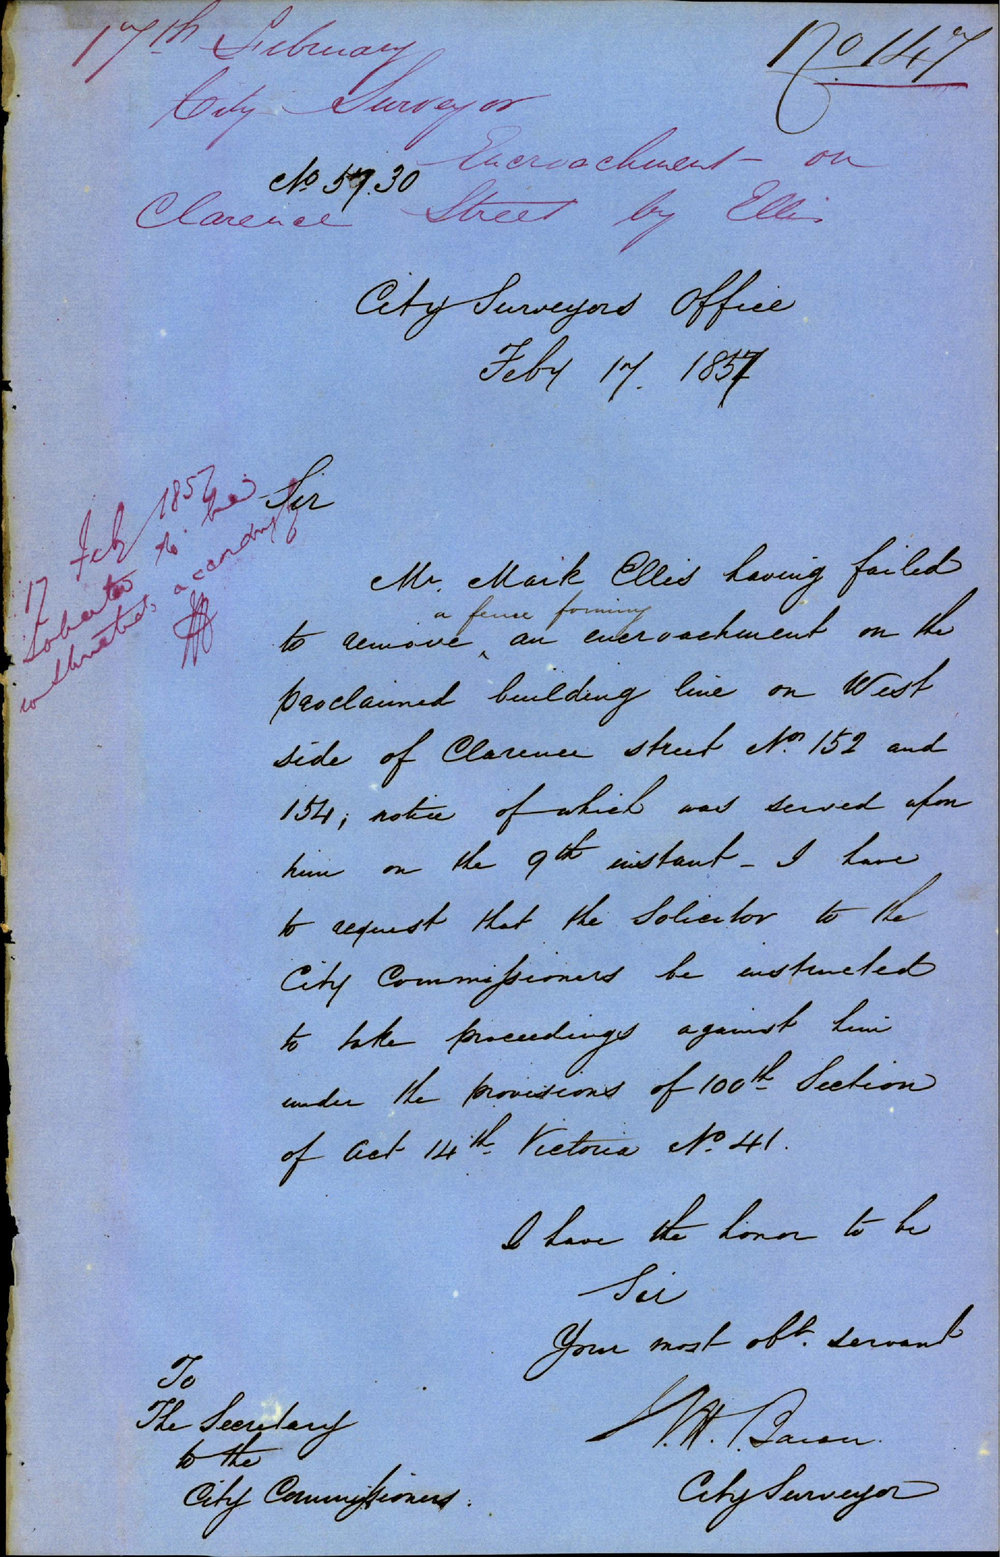 17th February
No 147
City Surveyor
Encroachment on
No 57.30
Clarence Street by Ellis
City Surveyors Office
Feby 17. 1857
17 Feby 1857
Solicitor to be
instructed accordingly
Sir
Mr. Mark Ellis having failed
a fence forming
to remove ‸ an encroachment on the
proclaimed building line on West
side of Clarence street Nos 152 and
154; notice of which was served upon
him on the 9th instant - I have
to request that the Solicitor to the
City Commissioners be instructed
to take proceedings against him
under the provisions of 100th Section
of Act 14th Victoria No 41.
I have the honor to be
Sir
Your most obt. servant
City Surveyor
To
The Secretary
to the
City Commissioners.